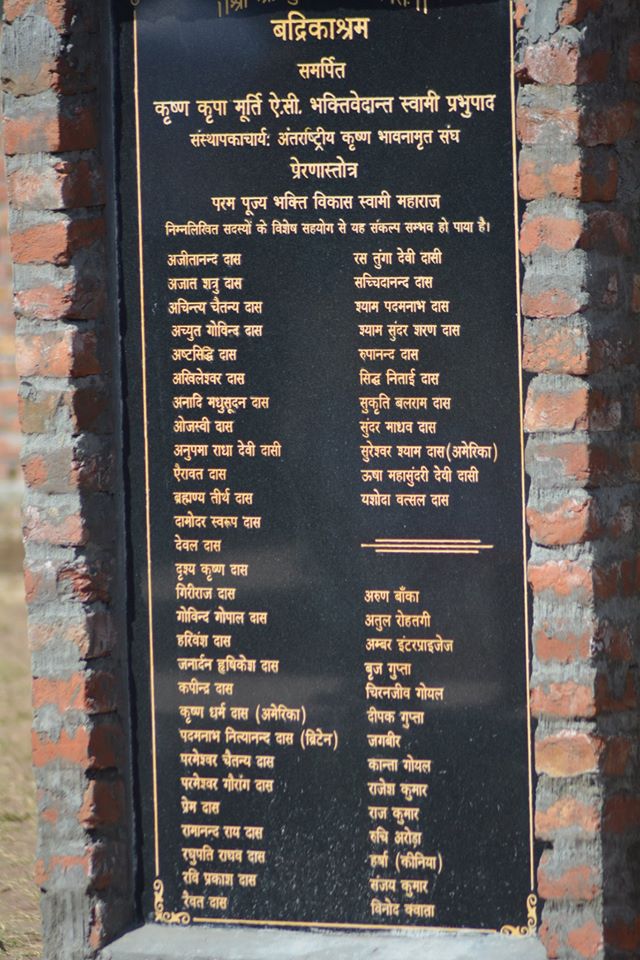 बद्रिकाश्रम
समर्पित
कृष्ण कृपा मूर्ति ऐ.सी. भक्तिवेदान्त स्वामी प्रभुपाद
संस्थापकाचार्यः अंतर्राष्ट्रीय कृष्ण भावनामृत संघ
प्रेरणास्तोत्र
परम पूज्य भक्ति विकास स्वामी महाराज
निम्नलिखित सदस्यों के विशेष सहयोग से यह संकल्प सम्भव हो पाया है।
अजीतानन्द दास
अजात शत्रु दास
अचिन्त्य चैतन्य दास
अच्युत गोविन्द दास
अष्टसिद्धि दास
अखिलेश्वर दास
अनादि मधुसूदन दास
ओजस्वी दास
अनुपमा राधा देवी दासी
ऐरावत दास
ब्रह्मण्य तीर्थ दास
दामोदर स्वरूप दास
देवल दास
दृश्य कृष्ण दास
गिरीराज दास
गोविन्द गोपाल दास
हरिवंश दास
जनार्दन हृषिकेश दास
कपीन्द्र दास
कृष्ण धर्म दास (अमेरिका)
पदमनाभ नित्यानन्द दास (ब्रिटेन)
परमेश्वर चैतन्य दास
परमेश्वर गौरांग दास
प्रेम दास
रामानन्द राय दास
रघुपति राघव दास
रवि प्रकाश दास
रैवत दास
रस तुंगा देवी दासी
सच्चिदानन्द दास
श्याम पदमनाभ दास
श्याम सुंदर शरण दास
रुपानन्द दास
सिद्ध निताई दास
सुकृति बलराम दास
सुंदर माधव दास
सुरेश्वर श्याम दास(अमेरिका)
ऊषा महासुंदरी देवी दासी
यशोदा वत्सल दास
अरुण बाँका
अतुल रोहतगी
अम्बर इंटरप्राइजेज
बृज गुप्ता
चिरनजीव गोयल
दीपक गुप्ता
जगबीर
कान्ता गोयल
राजेश कुमार
राज कुमार
रुचि अरोड़ा
हर्षा (कीनिया)
संजय कुमार
विनोद क्वात्रा